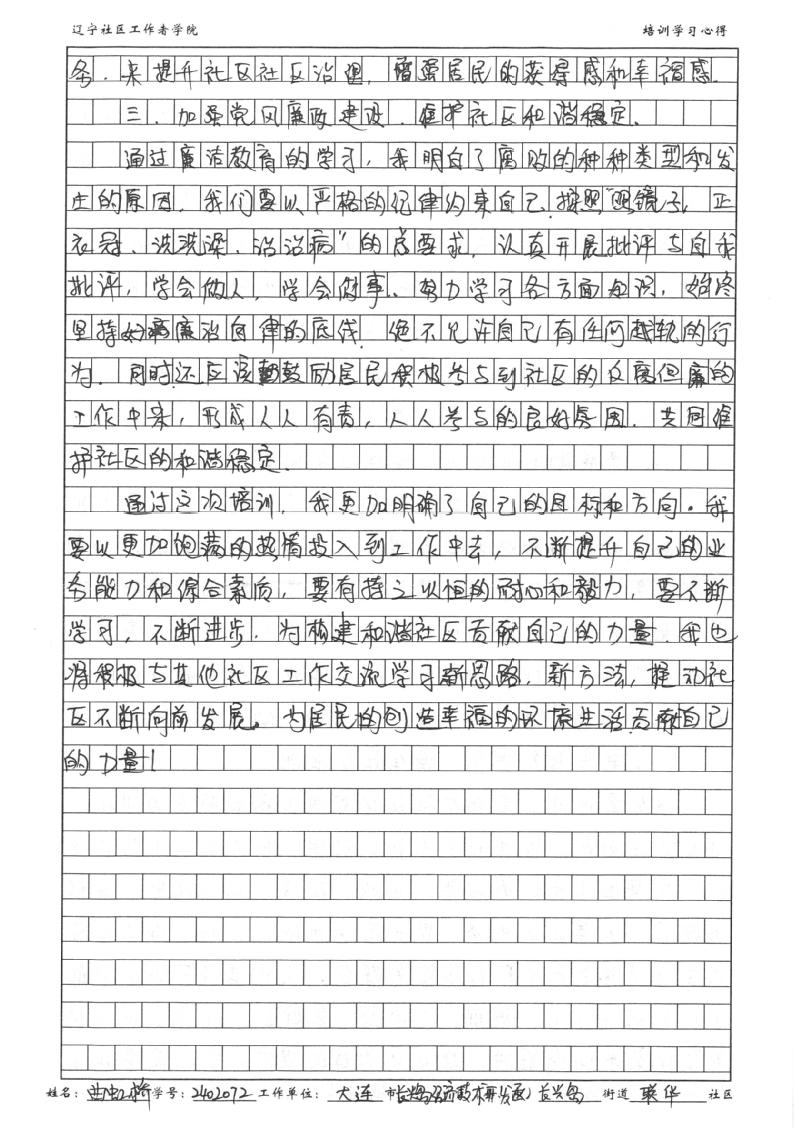 辽宁社区工作者学院 培训学习心得
务,来提升社区社区治理,增强居民的获得感和幸福感.
三.加强党风廉政建设.维护社区和谐稳定.
通过廉洁教育的学习,我明白了腐败的种种类型和发
生的原因.我们要以严格的纪律约束自己.按照"照镜子,正
衣冠、洗洗澡、治治病"的总要求,认真开展批评与自我
批评,学会做人,学会做事、努力学习各方面知识,始终
坚持好廉洁自律的底线.绝不允许自己有任何越轨的行
为.同时还应该鼓励居民积极参与到社区的反腐倡廉的
工作中来,形成人人有责,人人参与的良好氛围.共同维
护社区的和谐稳定.
通过这次培训,我更加明确了自己的目标和方向。我
要以更加饱满的热情投入到工作中去,不断提升自己的业
务能力和综合素质,要有持之以恒的耐心和毅力,要不断
学习,不断进步.为构建和谐社区贡献自己的力量.我也
将积极与其他社区工作交流学习新思路.新方法,推动社
区不断向前发展。为居民的创造幸福的环境生活贡献自己
的力量!
姓名:曲虹桥 学号:2402072 工作单位:大连 市 长兴岛经济技术开发区 长兴岛 街道 联华 社区